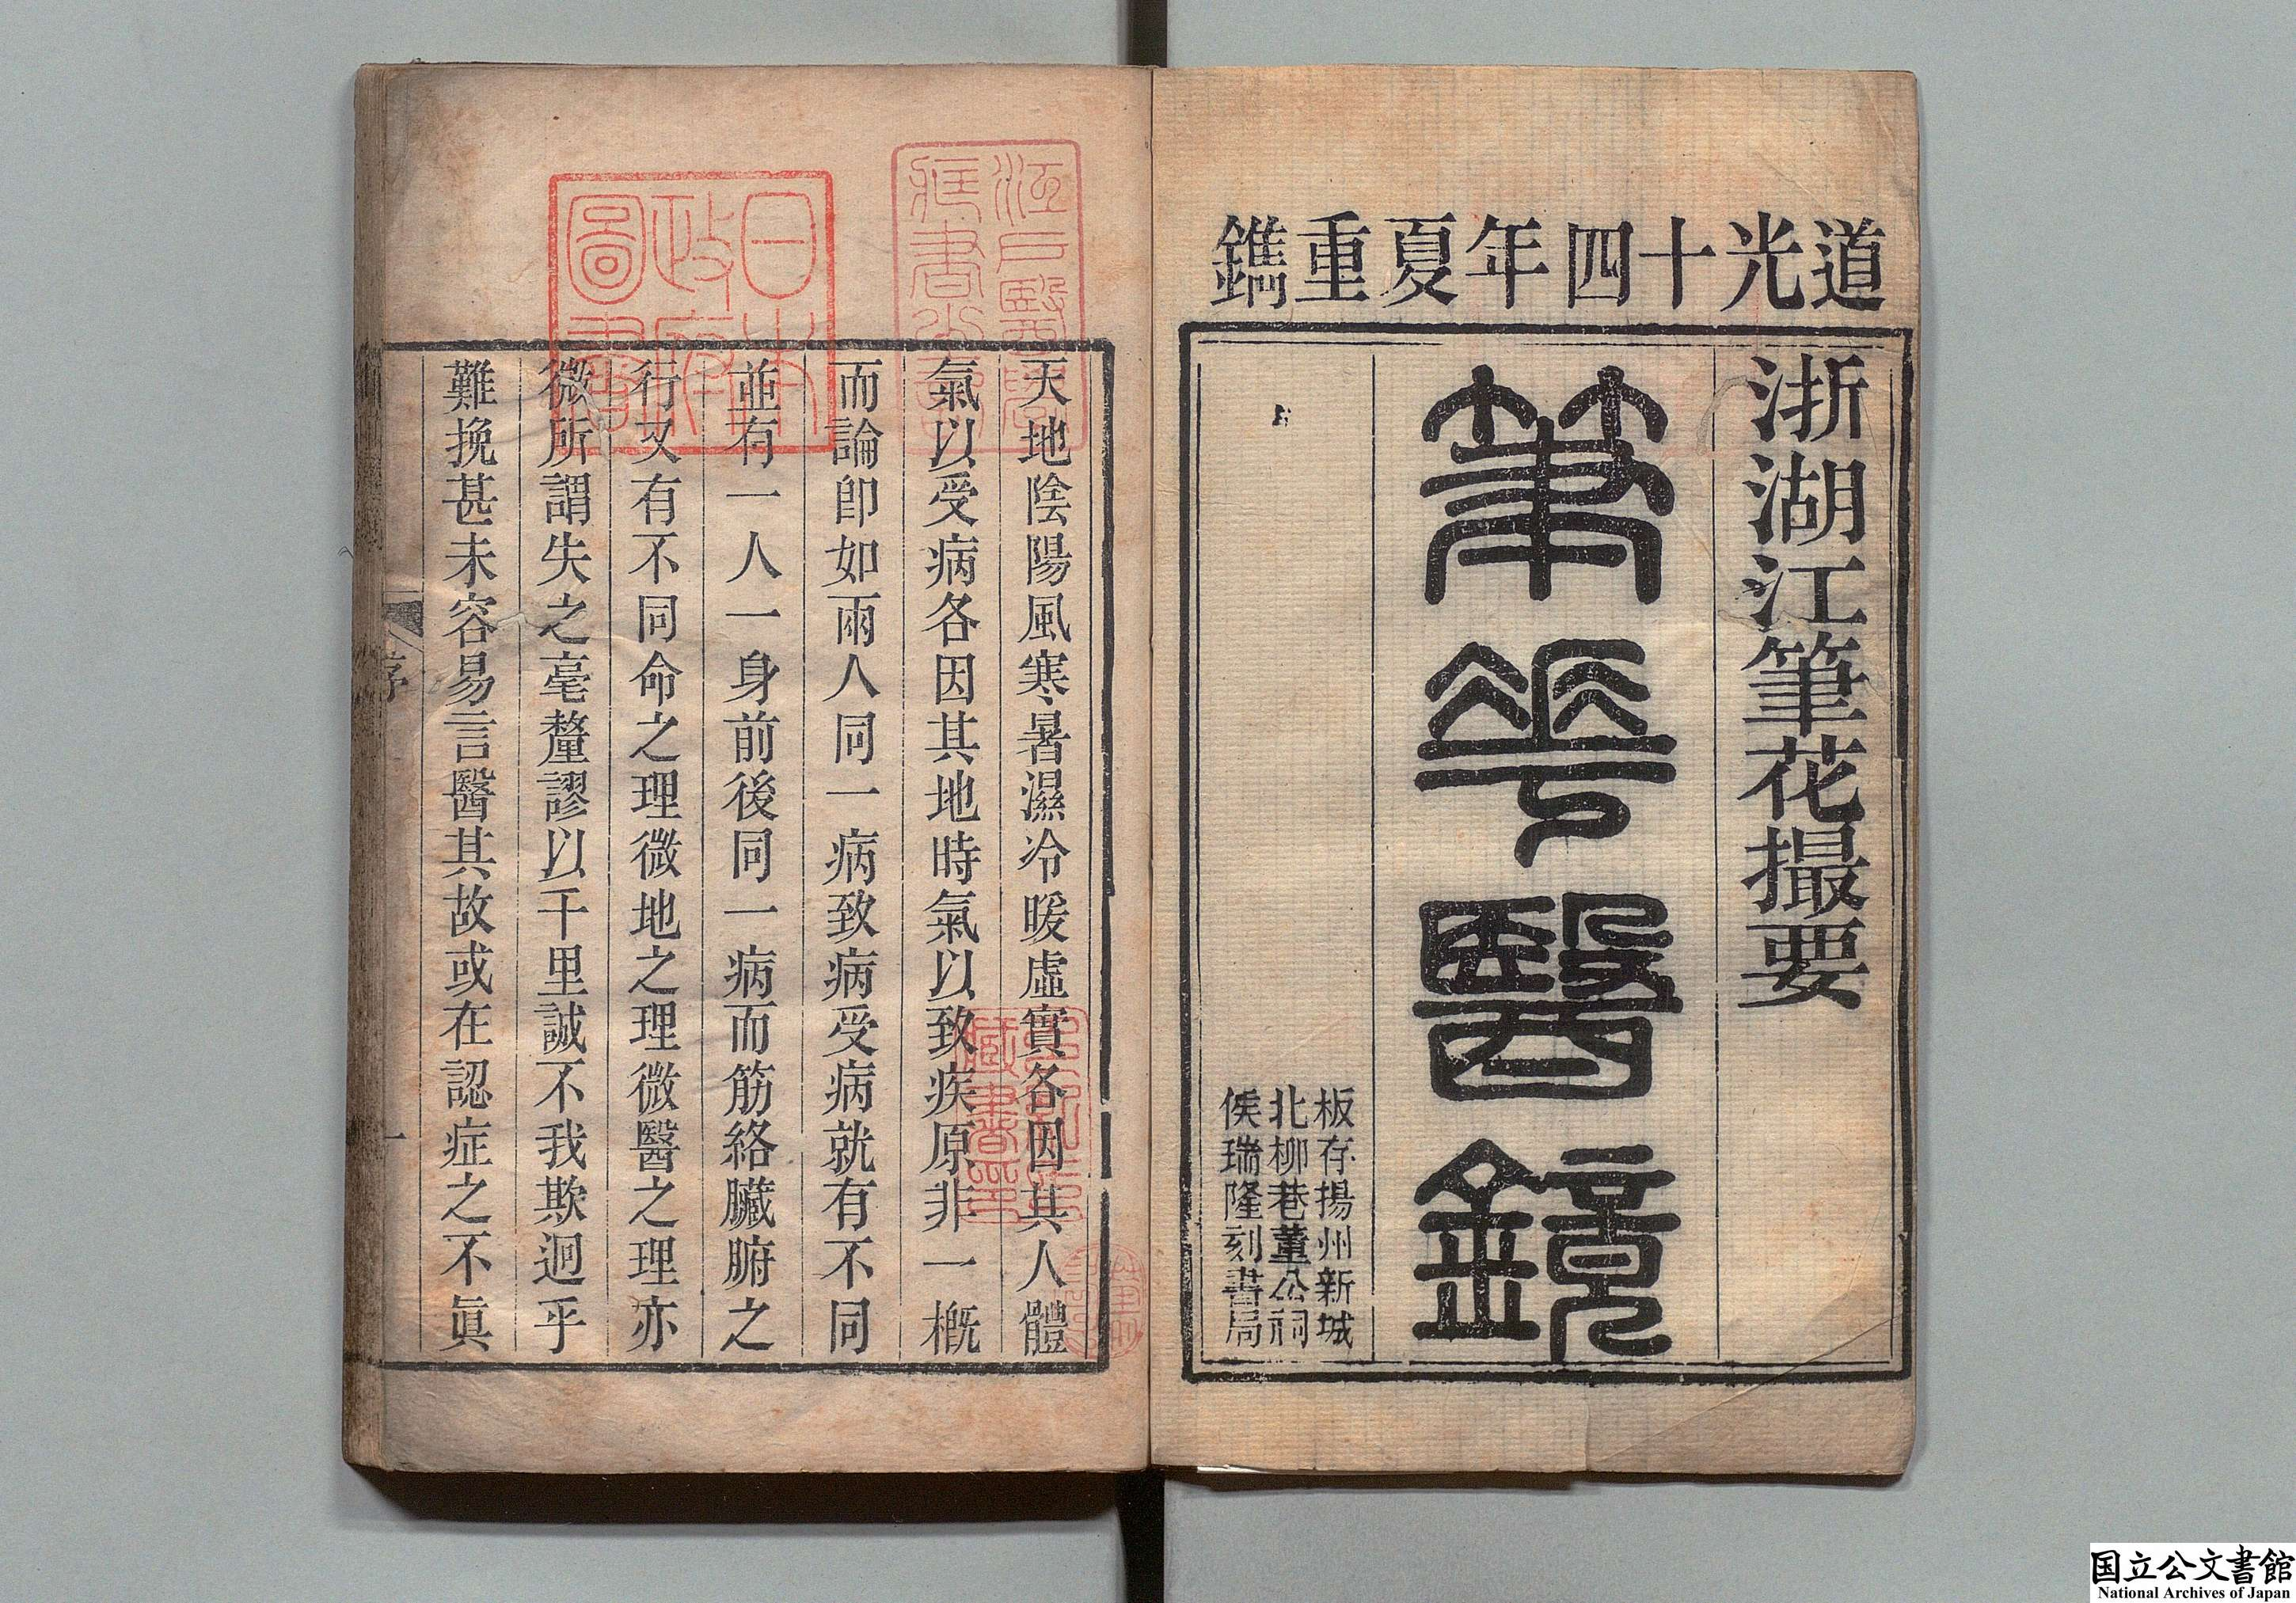 道光十四年夏重鐫
浙湖江筆花撮要
筆華醫鏡
板存揚州新城
北柳巷董公祠
侯瑞隆刻書局
天地陰陽風寒暑濕冷暖虛實各因其人體
氣以受病各因其地時氣以致疾原非一概
而論卽如兩人同一病致病受病就有不同
並有一人一身前後同一病而筋絡臟腑之
行又有不同命之理微地之理微醫之理亦
微所謂失之毫釐謬以千里誠不我欺迥乎
難挽甚未容易言醫其故或在認症之不眞
序
一
日本
政府
圖書
江戶醫學
藏書之記
藏書印
国立公文書館
National Archives of Japan